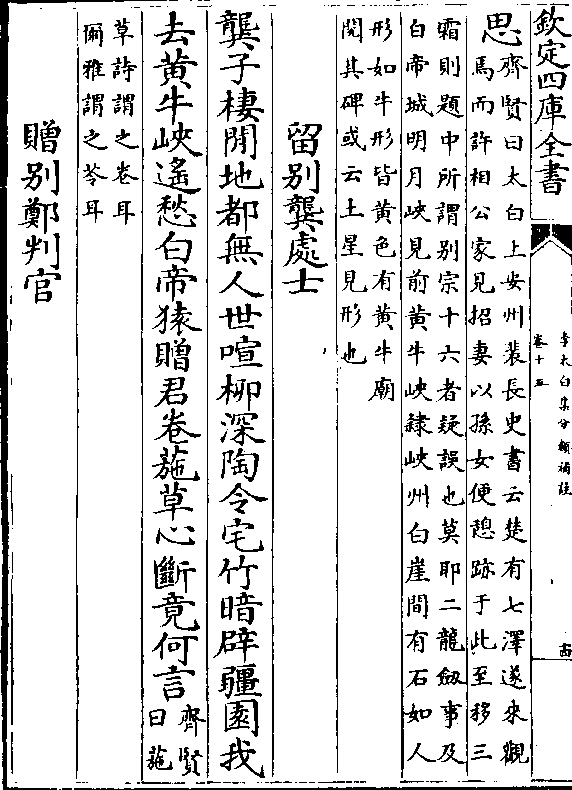 欽定四庫全書
李太白集分類補註
卷十五
古
思
齊賢曰太白上安州裴長史書云楚有七澤遂來觀
焉而許相公家見招妻以孫女便憩跡于此至移三
霜則題中所謂别宗十六者疑誤也莫耶二龍劔事及
白帝城明月峽見前黄牛峽隷峽州白崖間有石如人
形如牛形皆黄色有黄牛廟
閲其碑或云土星見形也
留别龔處士
龔子棲閒地都無人世喧栁深陶令宅竹暗辟疆園我
去黄牛峽遙愁白帝猿贈君卷葹草心斷竟何言
齊賢
曰葹
草詩謂之卷耳
爾雅謂之苓耳
贈别鄭判官